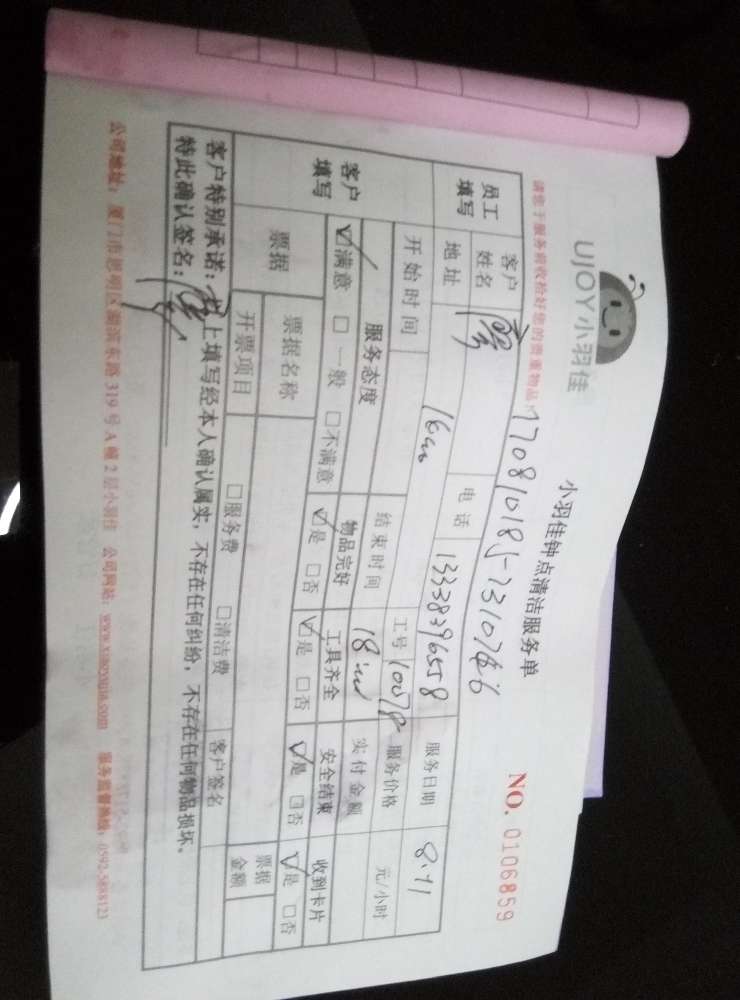 UJOY小羽佳
小羽佳钟点清洁服务单
NO. 0106859
请您于服务前收拾好您的贵重物品!
员工填写
客户姓名
电话 13338396558
服务日期 8.11
地址
工号 10078
服务价格 元/小时
开始时间 16:00
结束时间 18:00
实付金额
客户填写
服务态度 物品完好 工具齐全 安全结束 收到卡片
☑满意 □一般 □不满意 ☑是 □否 ☑是 □否 ☑是 □否 ☑是 □否
票据 票据名称 □服务费 □清洁费 客户签名 票据金额
开票项目
客户特别承诺:以上填写经本人确认属实,不存在任何纠纷,不存在任何物品损坏。
特此确认签名:
公司地址:厦门市思明区湖滨东路319号A幢2层小羽佳 公司网站:www.xiaoyujia.com 服务监督热线:0592-5888123